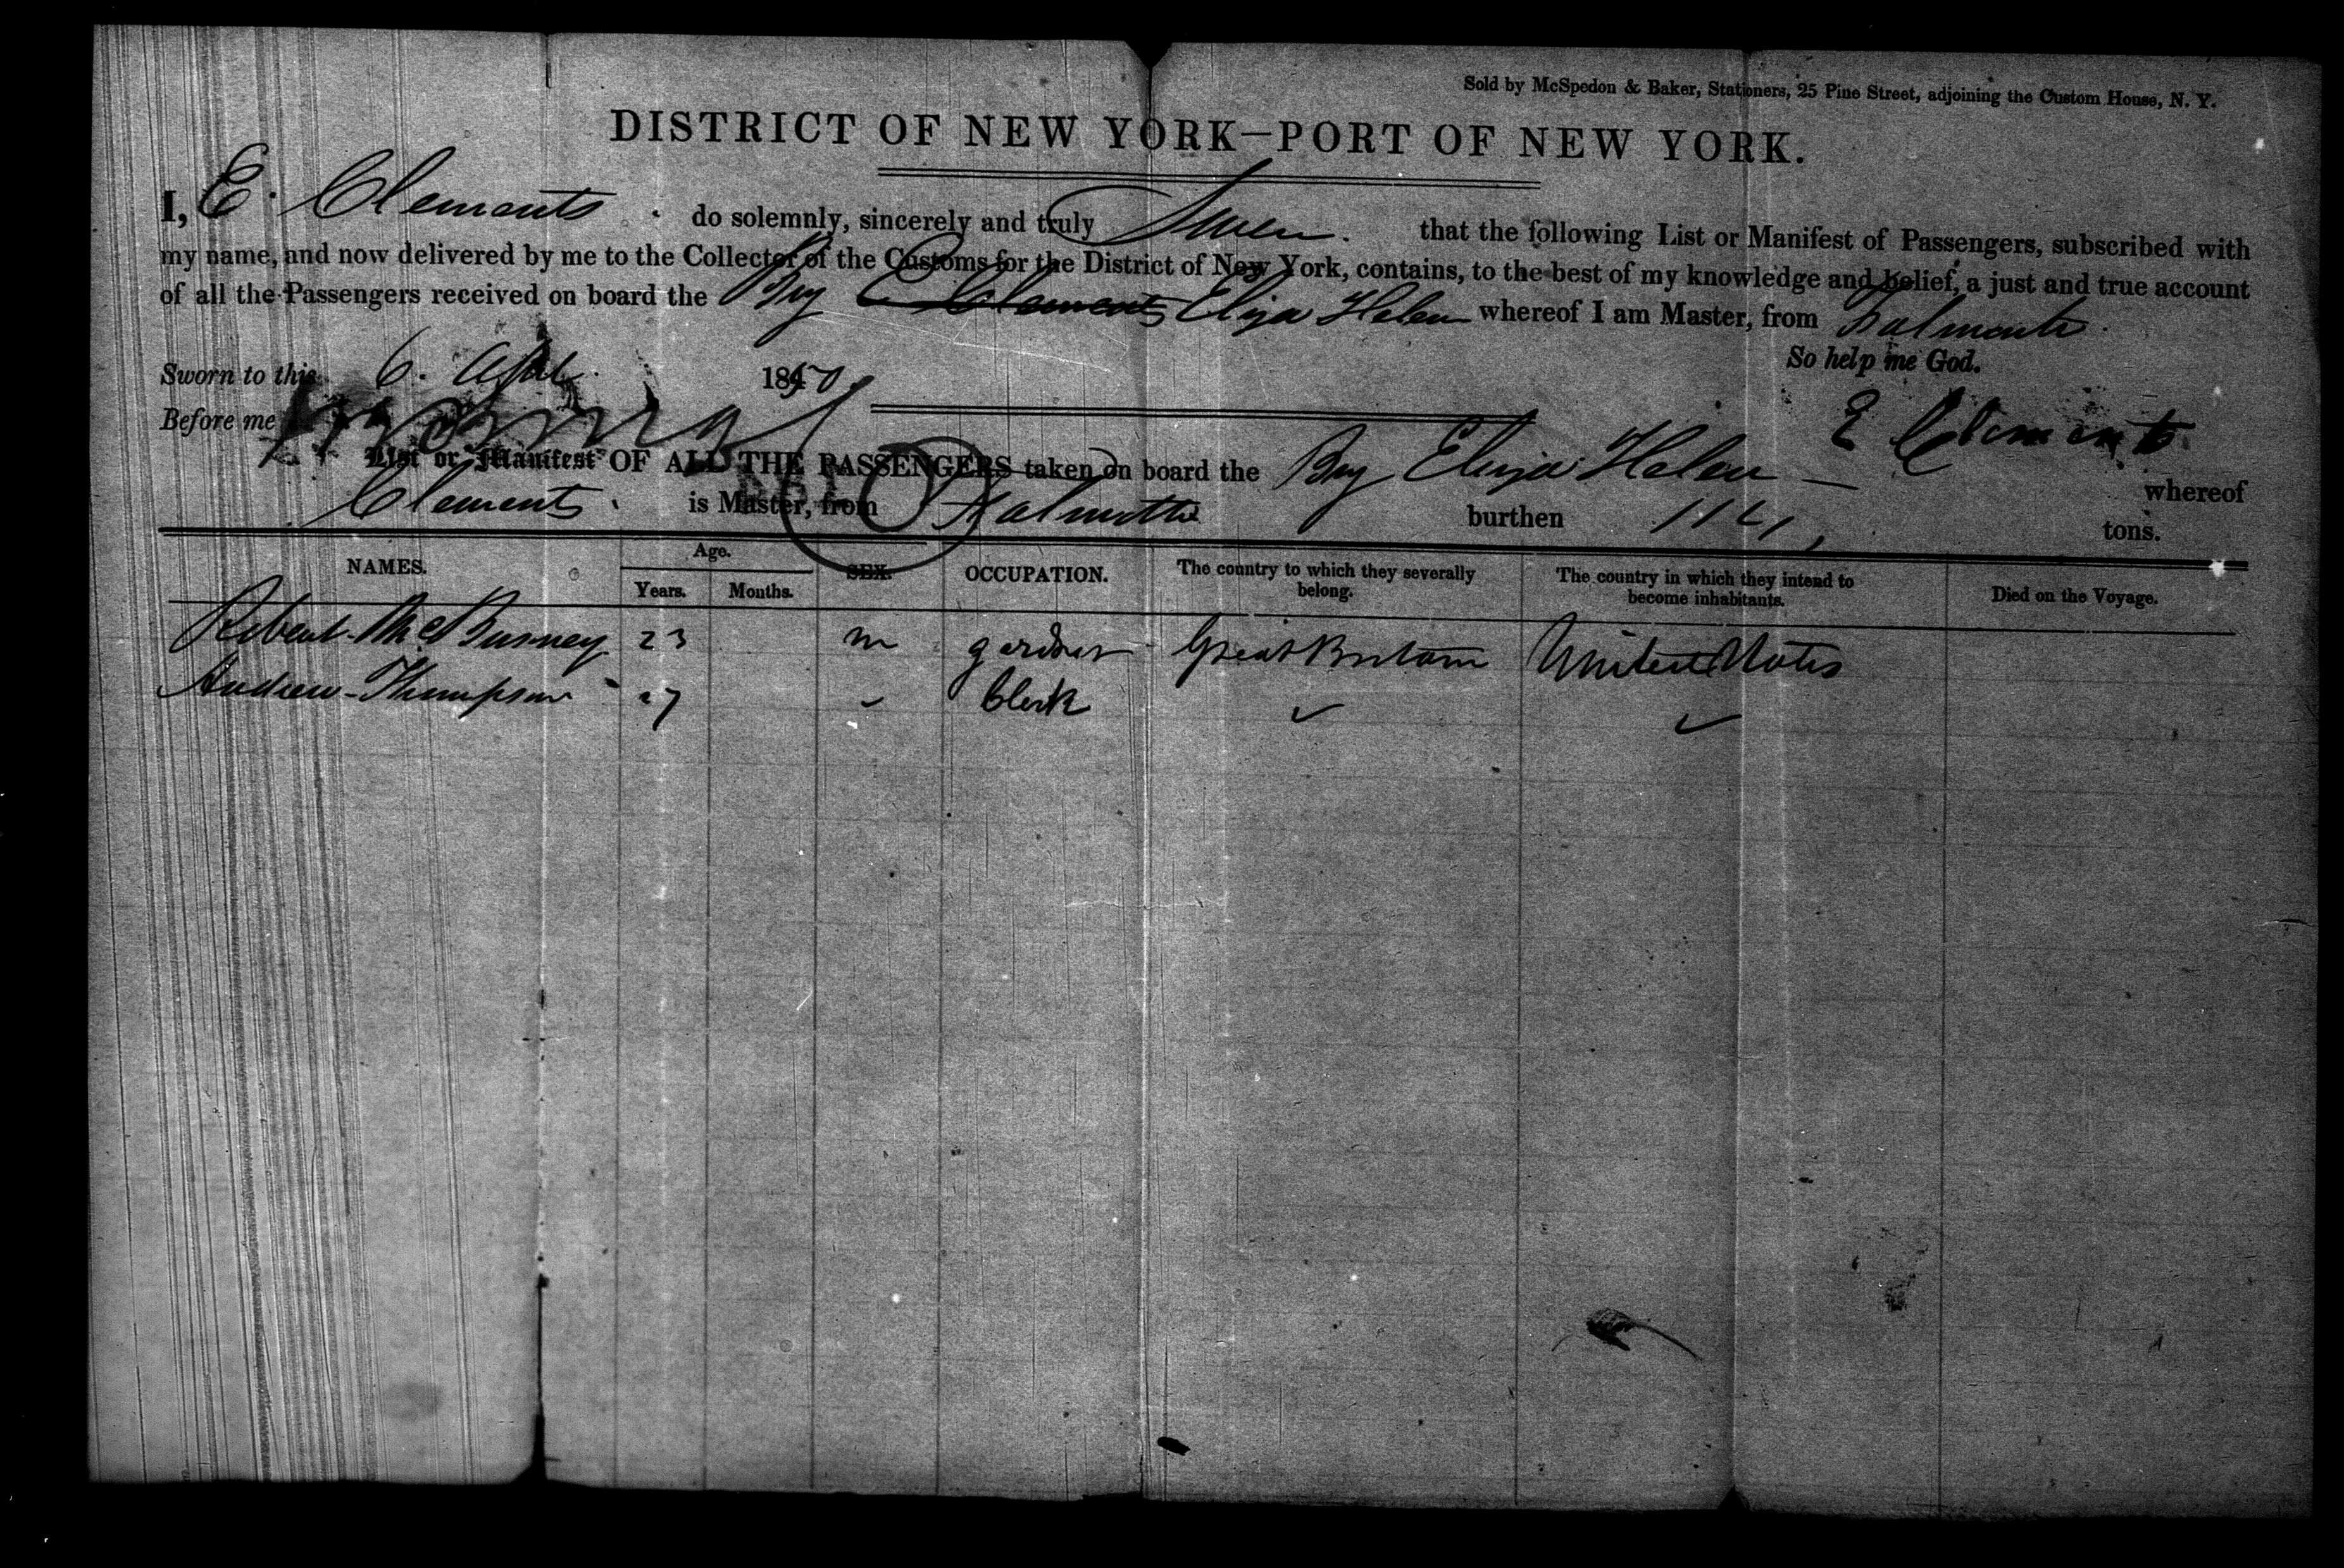 Sold by McSpedon & Baker, Stationers, 25 Pine Street, adjoining the Custom House, N. Y.
DISTRICT OF NEW YORK—PORT OF NEW YORK.
I, E. Clements do solemnly, sincerely and truly Swear that the following List or Manifest of Passengers, subscribed with
my name, and now delivered by me to the Collector of the Customs for the District of New York, contains, to the best of my knowledge and belief, a just and true account
of all the Passengers received on board the Brig E Clements Eliza Helen whereof I am Master, from Falmouth
So help me God.
Sworn to this 6. Apl 1850
Before me
E Clements
List or Manifest OF ALL THE PASSENGERS taken on board the Brig Eliza Helen whereof
Clements is Master, from Falmouth burthen 114 tons.
NAMES. Age. Years. Months. SEX. OCCUPATION. The country to which they severally belong. The country in which they intend to become inhabitants. Died on the Voyage.
Robert McBurney 23 m gardner Great Britain United States
Andrew Thompson 27 Clerk